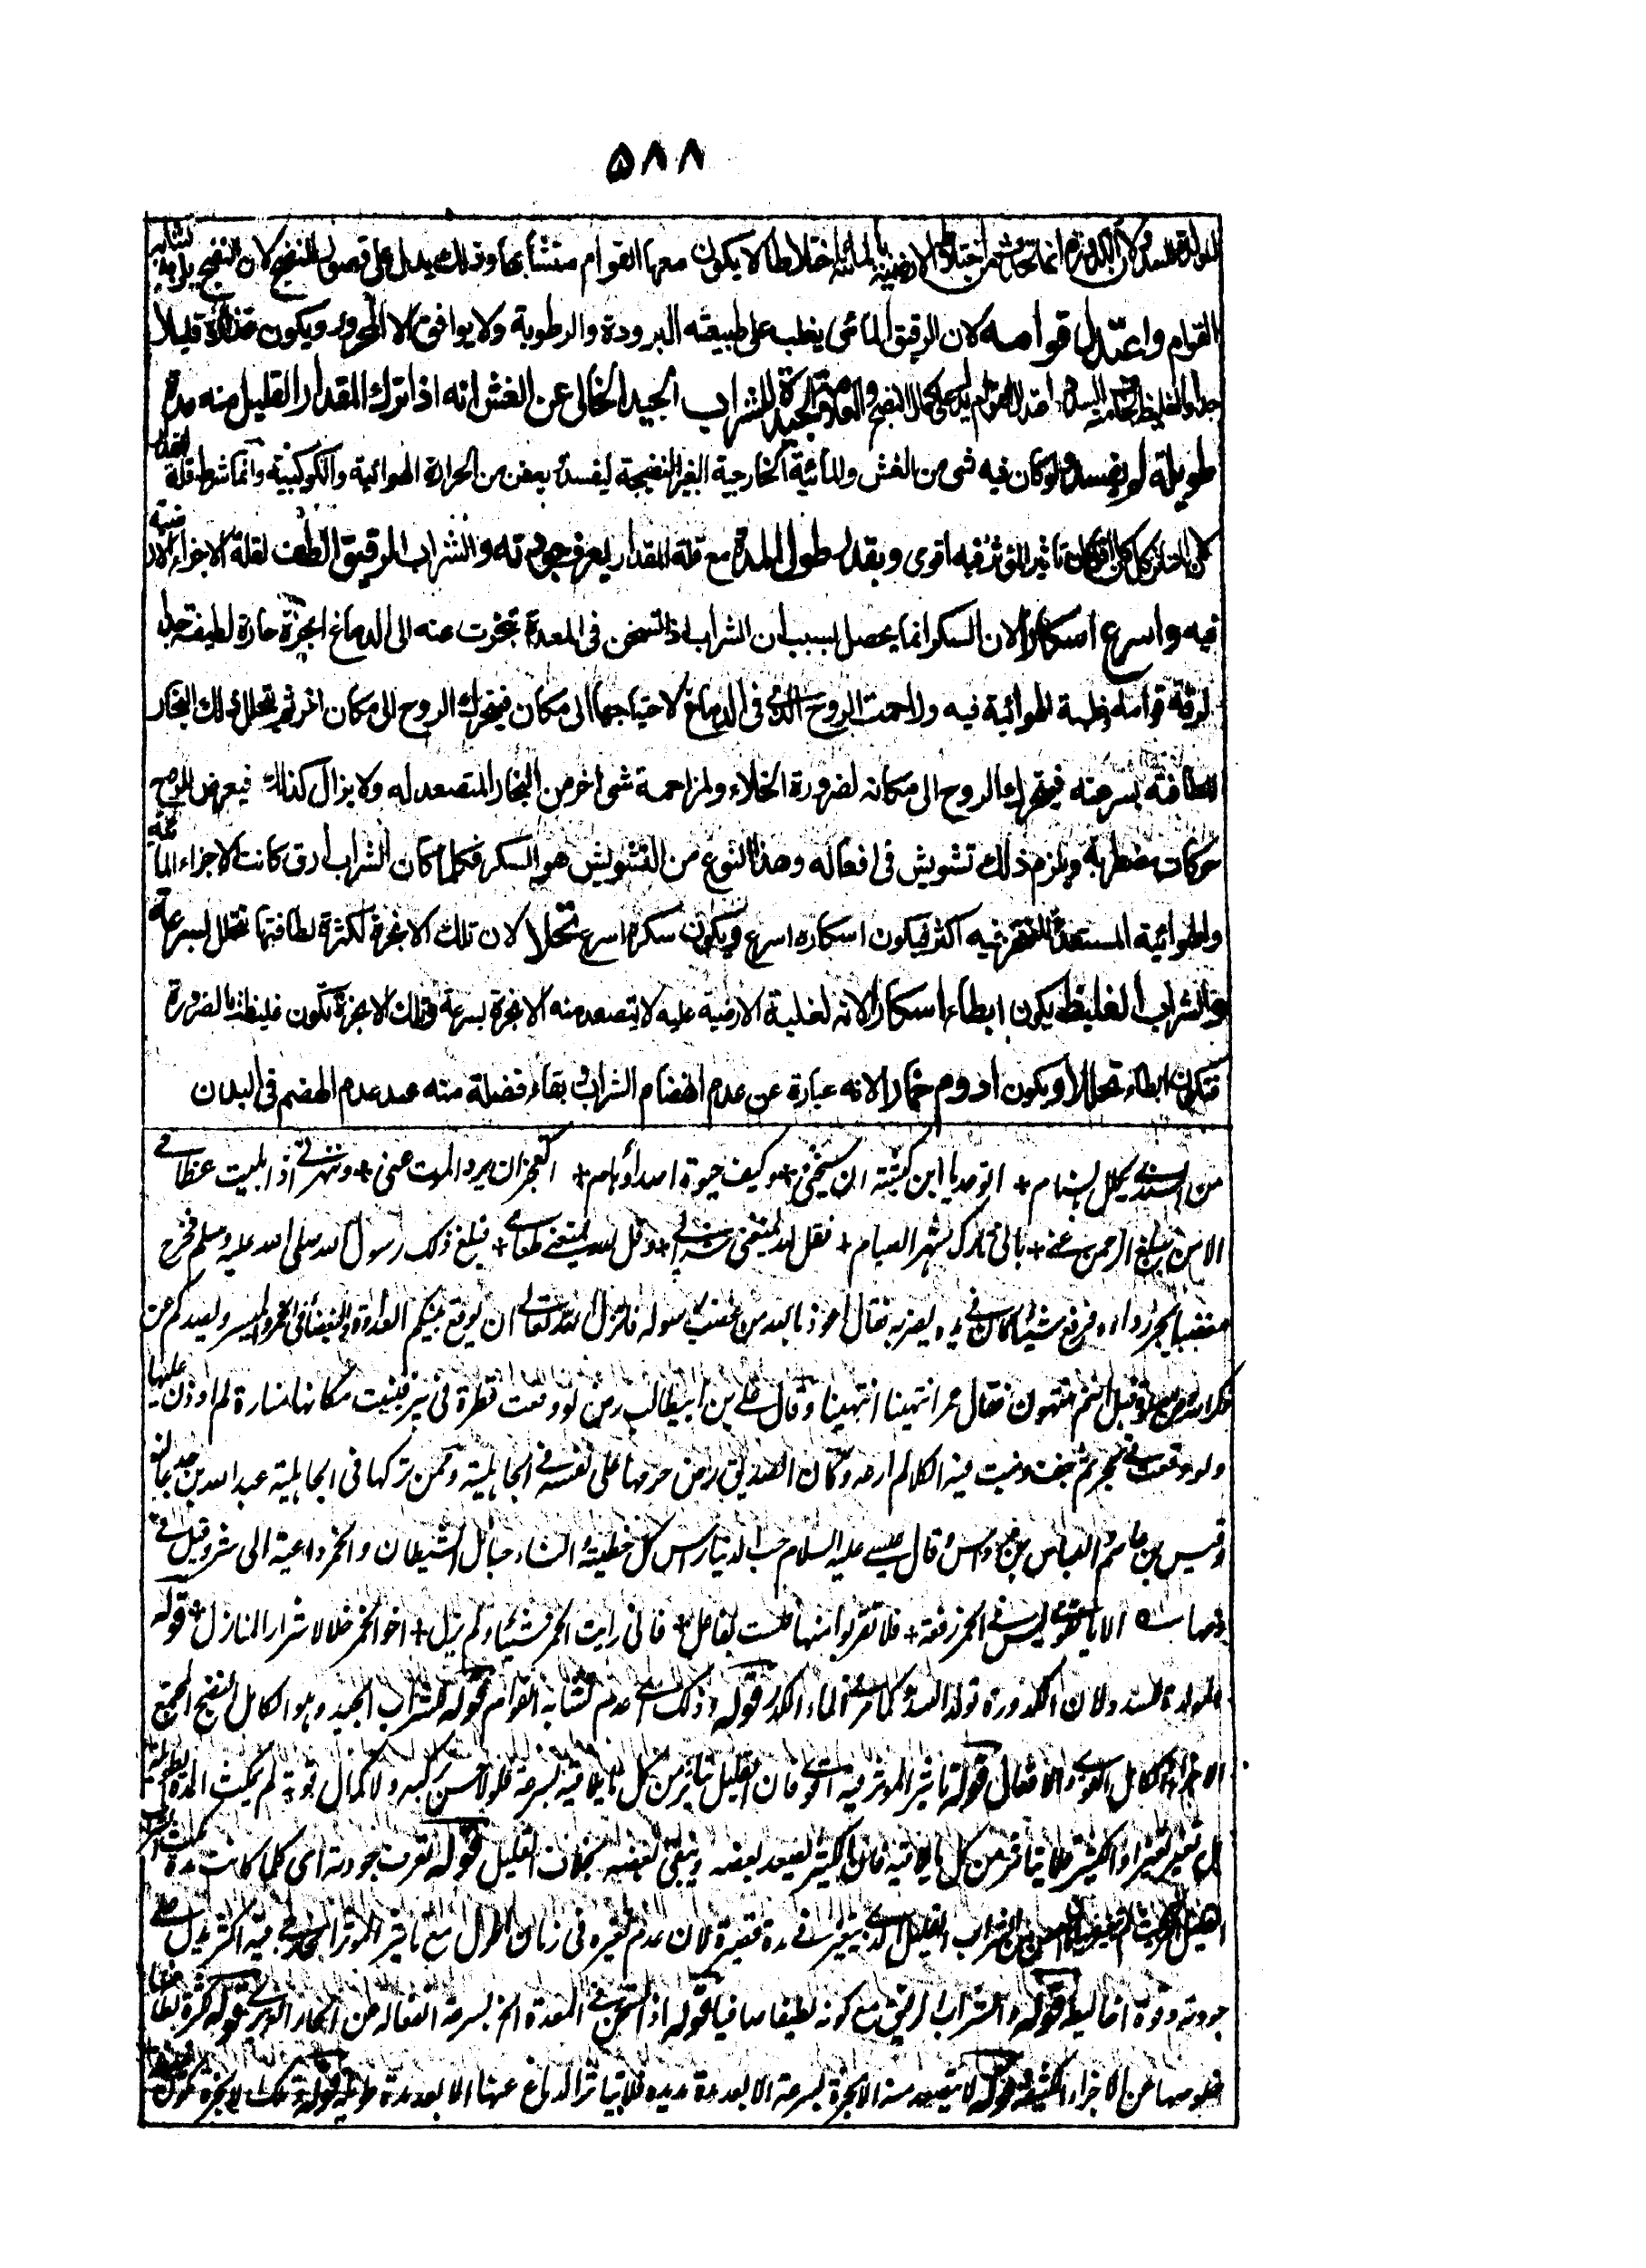 ٥٨٨
المولدة للسدد ولان الكدورة انما تحدث من اختلاط الارضية بالمائية اختلاطا لا يكون معها القوام متشابها وذلك يدل على قصور النضج لان النضج يلزمه تشابه
القوام واعتدل قوامه لان الرقيق المائى يغلب على طبيعته البرودة والرطوبة ولا يوافق الا المحرور ويكون غذاؤه قليلا
جدا والغليظ اعتدال القوام يدل على كمال النضج والعلامة الجيدة للشراب الجيد الخالى عن الغش انه اذا ترك المقدار القليل منه مدة
طويلة لم يفسد ولو كان فيه شى من الغش والمائية الخارجية الغير النضيجة ليفسد بعفن من الحرارة الهوائية والكوكبية وانما شرط قلة المقدار
لان كل كان اقل كان تاثير المؤثر فيه اقوى وبقدر طول المدة مع قلة المقدار يعرف جودته والشراب الرقيق الطف لقلة الاجزاء الارضية
فيه واسرع اسكارا لان السكر انما يحصل بسبب ان الشراب اذا تسخن فى المعدة تبخرت عنه الى الدماغ ابخرة حارة لطيفة جدا
لرقة قوامه وغلبة الهوائية فيه وزاحمت الروح الذى فى الدماغ لاحتياجها الى مكان فيتحرك الروح الى مكان اخر ثم يتحلل ذلك البخار
للطافته بسرعة فيتحرك الروح الى مكانه لضرورة الخلاء ولمزاحمة شى اخر من البخار المتصعد له ولا يزال كذلك فيعرض للروح
حركات مضطربة ويلزم ذلك تشويش فى افعاله وهذا النوع من التشويش هو السكر فكلما كان الشراب ارق كانت الاجزاء المائية
والهوائية المستعدة للتبخر فيه اكثر فيكون اسكاره اسرع ويكون سكره اسرع تحللا لان تلك الابخرة لكثرة لطافتها تتحلل بسرعة
والشراب الغليظ يكون ابطاء اسكارا لانه لغلبة الارضية عليه لا يتصعد منه الابخرة بسرعة وتلك الابخرة تكون غليظة بالضرورة
فتكون ابطاء تحللا ويكون ادوم خمارا لانه عبارة عن عدم انهضام الشراب وبقاء فضلة منه عند عدم الهضم فى البدن
من الشيزى يكلل بالسنام + اتوعدنا ابن كبشة ان سنحيى + وكيف حيوة اصداء وهام + اتعجز ان يرد الموت عنى + وتنشرنى اذا بليت عظامى
الا من مبلغ الرحمن عنى + بانى تارك شهر الصيام + فقل لله يمنعنى شرابى + وقل لله يمنعنى طعامى + فبلغ ذلك رسول الله صلى الله عليه وسلم فخرج
مغضبا يجر رداءه فرفع شيئا كان فى يده ليضربه فقال اعوذ بالله من غضب رسوله فانزل الله تعالى ان يوقع بينكم العداوة والبغضاء فى الخمر والميسر ويصدكم عن
ذكر الله وعن الصلوة فهل انتم منتهون فقال عمر انتهينا انتهينا وقال على بن ابيطالب رض لو وقعت قطرة فى بير فبنيت مكانها منارة لم اوذن عليها
ولو وقعت فى بحر ثم جف ونبت فيه الكلأ لم ارعه وكان الصديق رض حرمها على نفسه فى الجاهلية وممن تركها فى الجاهلية عبد الله بن جدعان
وقيس بن عاصم والعباس بن مرداس وقال عيسى عليه السلام حب الدنيا راس كل خطيئة والنساء حبائل الشيطان والخمر داعية الى شر وقيل فى
ليس فى الخمر رفعة + فلا تقربوا منها فلست بفاعل + فانى رايت الخمر شيئا ولم يزل + اخو الخمر حلالا شرار المنازل + قوله
المولدة للسدد ولان الكدورة تولد السدد كما فى الماء الكدر قوله وذلك اى عدم تشابه القوام قوله للشراب الجيد وهو الكامل النضج
الكامل القوى والافعال قوله تاثير المؤثر فيه اقوى فان القليل يتاثر من كل ما يلاقيه بسرعة فلولا حسن تركيبه ولا كمال قوته لم يمكث المدة الطويلة
بل تغير والكثير قلما يتاثر من كل ما يلاقيه فان الكثير يفسد بعضه ويبقى بعضه بخلاف القليل قوله يعرف جودته اى كلما كانت مدة
الشراب القليل الذى يتغير فى مدة قصيرة لان عدم تغيره فى زمان اطول مع تاثير المؤثر فيه اكثر يدل على
جودته وقوة اخالطه قوله والشراب الرقيق مع كونه لطيفا صافيا قوله اذا تسخن فى المعدة الخ لسرعة انفعاله من الحار الغريزى قوله لكثرة لطافتها
خلوصها عن الاجزاء الكثيفة قوله لا يتصعد منه الابخرة بسرعة الا بعد مدة مديدة فلا يتاثر الدماغ عنها الا بعد مدة طويلة قوله وتلك الابخرة تكون